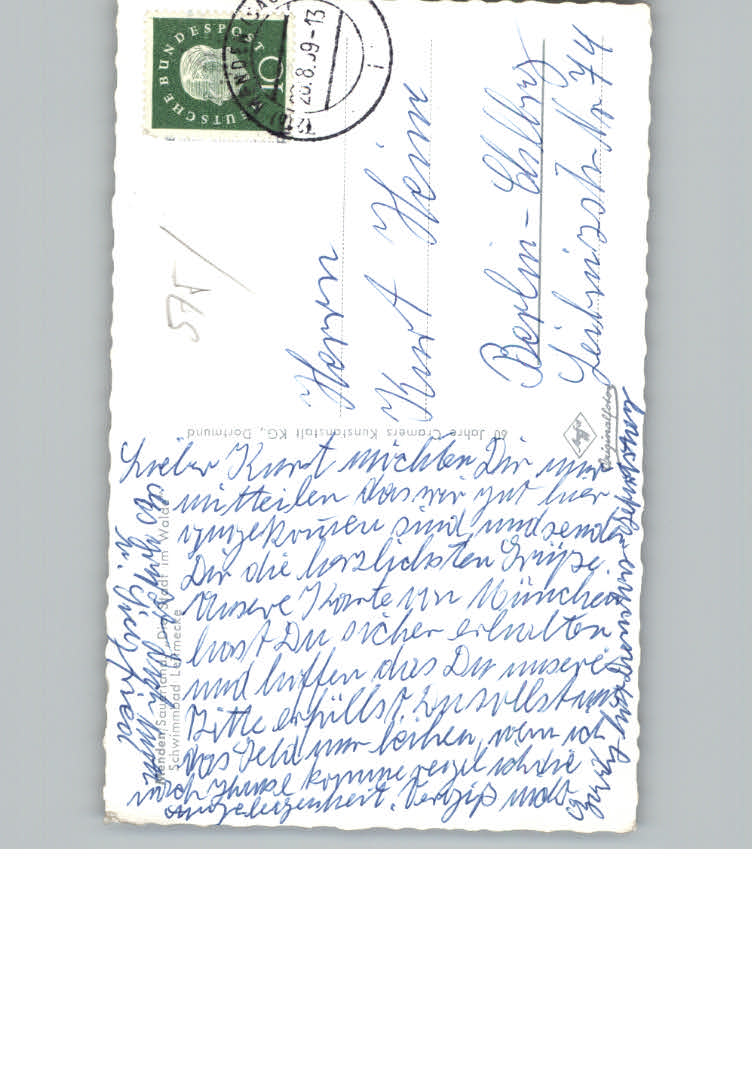 DEUTSCHE BUNDESPOST
10
MENDEN (SAUERL
26.8.59-13
i
575
Herrn
Kurt Heim
Berlin-Chlbrg
Leibnizstr. Nr 74
60 Jahre Cramers Kunstanstalt KG., Dortmund
Agfa
Originalfoto
Menden/Sauerland, Die Stadt im Walde
Schwimmbad Leitmecke
Lieber Kurt möchten Dir nur
mitteilen das wir gut hier
angekommen sind und senden
Dir die herzlichsten Grüße.
Unsere Karte von München
hast Du sicher erhalten
und hoffen das Du unsere
Bitte erfüllst. Du sollst uns
das Geld nur leihen, wenn ich
nach Hause komme regel ich die
angelegenheit. Vergiß nicht
Es grüßt Dich
u. Siegfried